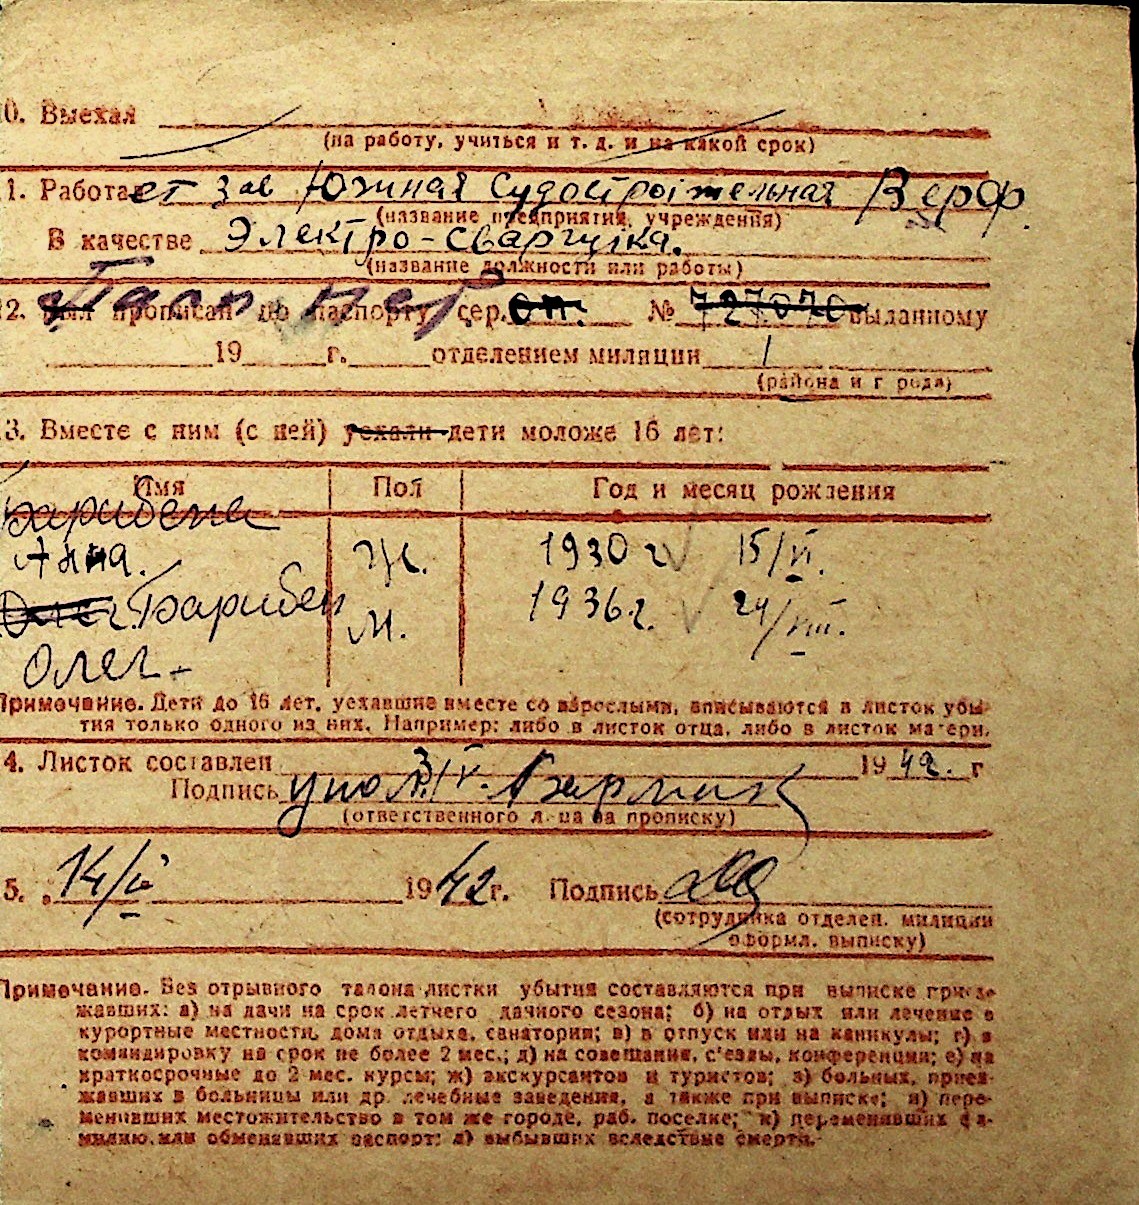 0. Выехал
(на работу, учиться и т. д. и на какой срок)
1. Работает зав Южная Судостроительная Верф
(название предприятия, учреждения)
В качестве Электро-сварщика.
(название должности или работы)
2. прописан по паспорту сер. оп. № 727070 выданному
19 г. отделением милиции 1
(района и города)
3. Вместе с ним (с ней) уехали дети моложе 16 лет:
Имя Пол Год и месяц рождения
Анна. Ж. 1930 г 15/VI.
Олег. Барибен М. 1936 г. 24/VIII.
Олег
Примечание. Дети до 16 лет, уехавшие вместе со взрослыми, вписываются в листок убы-
тия только одного из них. Например: либо в листок отца, либо в листок матери.
4. Листок составлен 3/IV. 1942. г
Подпись
(ответственного лица за прописку)
5. „14/ 1942 г. Подпись
(сотрудника отделен. милиции
оформл. выписку)
Примечание. Без отрывного талона листки убытия составляются при выписке приез-
жавших: а) на дачи на срок летнего дачного сезона; б) на отдых или лечение в
курортные местности, дома отдыха, санатории; в) в отпуск или на каникулы; г) в
командировку на срок не более 2 мес.; д) на совещания, с'езды, конференции; е) на
краткосрочные до 2 мес. курсы; ж) экскурсантов и туристов; з) больных, приез-
жавших в больницы или др. лечебные заведения, а также при выписке; и) пере-
менивших местожительство в том же городе, раб. поселке; к) переменивших фа-
милию или обменявших паспорт; л) выбывших вследствие смерти.